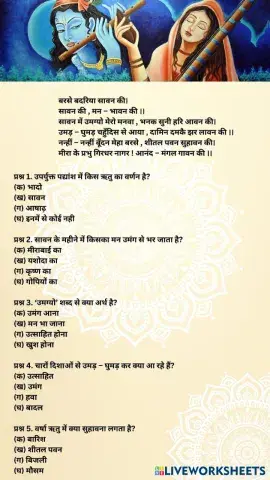 बरसे बदरिया सावन की।
सावन की , मन – भावन की ।।
सावन में उमग्यो मेरो मनवा , भनक सुनी हरि आवन की।
उमड़ – घुमड़ चहुँदिस से आया , दामिन दमकै झर लावन की ।।
नन्हीं – नन्हीं बूँदन मेहा बरसे , शीतल पवन सुहावन की।
मीरा के प्रभु गिरधर नागर ! आनंद – मंगल गावन की ।।
प्रश्न 1. उपर्युक्त पद्यांश में किस ऋतु का वर्णन है?
(क) भादो
(ख) सावन
(ग) आषाढ़
(घ) इनमें से कोई नही
प्रश्न 2. सावन के महीने में किसका मन उमंग से भर जाता है?
(क) मीराबाई का
(ख) यशोदा का
(ग) कृष्ण का
(घ) गोपियों का
प्रश्न 3. ‘उमग्यो’ शब्द से क्या अर्थ है?
(क) उमंग आना
(ख) मन भा जाना
(ग) उत्साहित होना
(घ) खुश होना
प्रश्न 4. चारों दिशाओं से उमड़ – घुमड़ कर क्या आ रहे हैं?
(क) उत्साहित
(ख) उमंग
(ग) हवा
(घ) बादल
प्रश्न 5. वर्षा ऋतु में क्या सुहावना लगता है?
(क) बारिश
(ख) शीतल पवन
(ग) बिजली
(घ) मौसम
LIVEWORKSHEETS